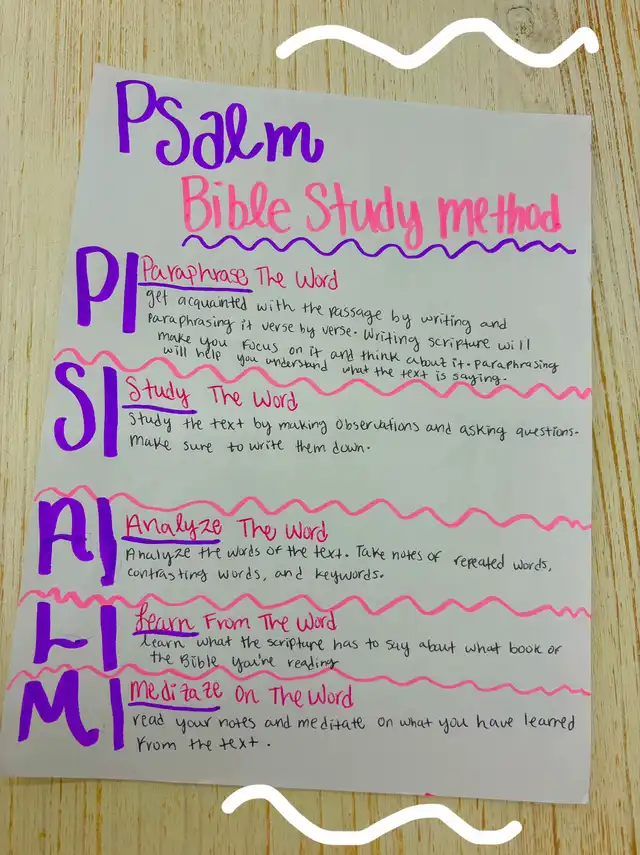 Psalm
Bible Study method
P| Paraphrase The Word
get acquainted with the passage by writing and
Paraphrasing it verse by verse. Writing scripture will
make you focus on it and think about it. Paraphrasing
will help you understand what the text is saying.
S| Study The Word
Study the text by making observations and asking questions.
make sure to write them down.
A| Analyze The Word
Analyze the words of the text. Take notes of repeated words,
contrasting words, and keywords.
L| Learn From The Word
learn what the scripture has to say about what book of
the Bible you're reading
M| Meditaze On The Word
read your notes and meditate on what you have learned
from the text.